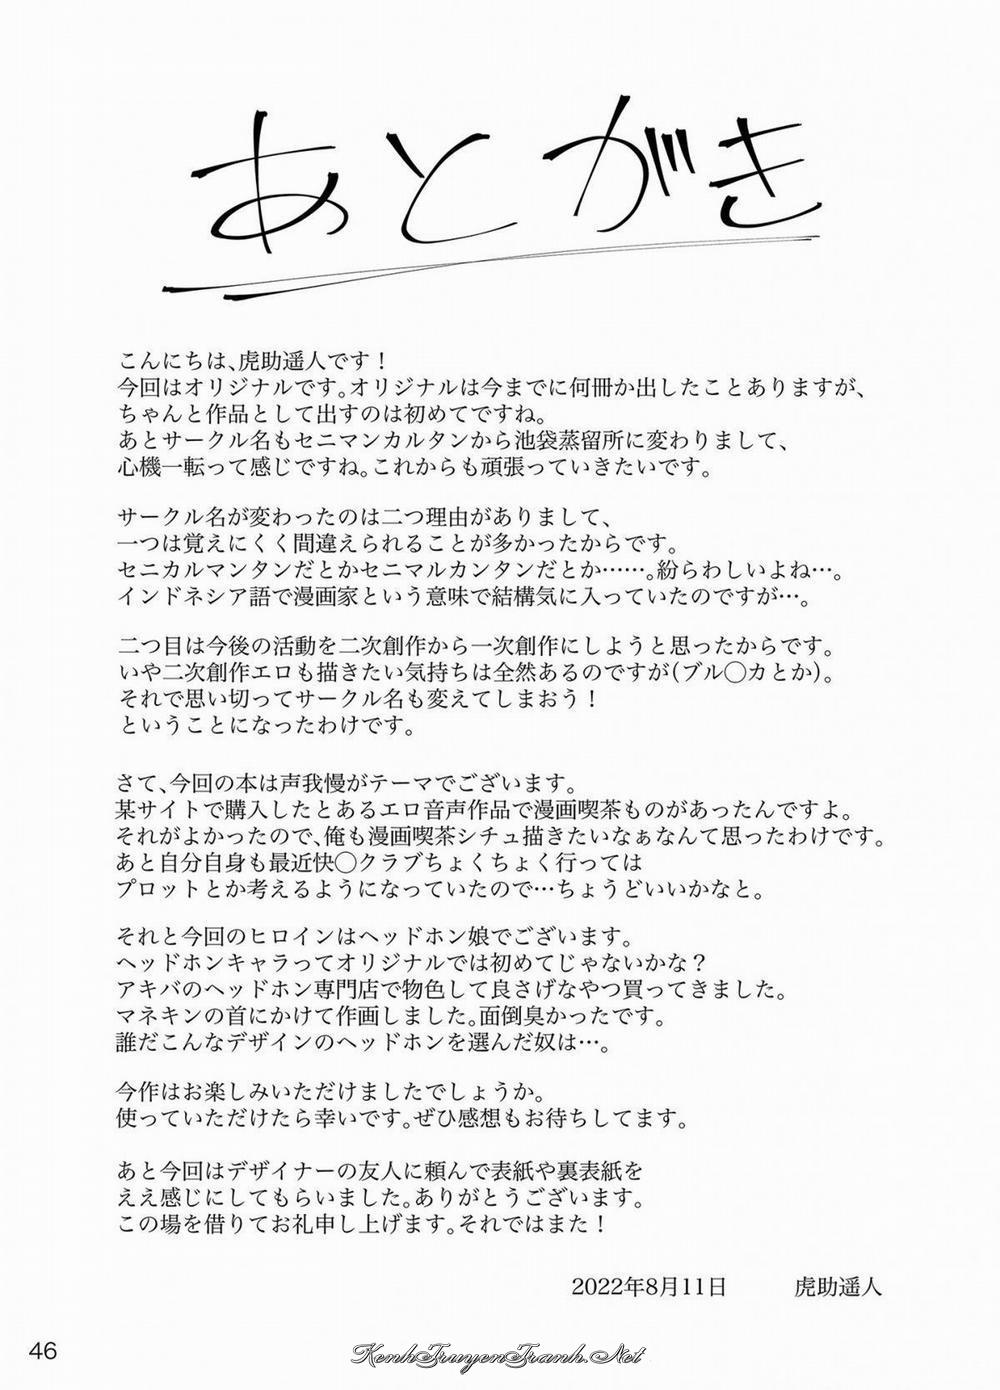 あとがき
こんにちは、虎助遥人です！
今回はオリジナルです。オリジナルは今までに何冊か出したことありますが、
ちゃんと作品として出すのは初めてですね。
あとサークル名もセニマンカルタンから池袋蒸留所に変わりまして、
心機一転って感じですね。これからも頑張っていきたいです。
サークル名が変わったのは二つ理由がありまして、
一つは覚えにくく間違えられることが多かったからです。
セニカルマンタンだとかセニマルカンタンだとか……。紛らわしいよね…。
インドネシア語で漫画家という意味で結構気に入っていたのですが…。
二つ目は今後の活動を二次創作から一次創作にしようと思ったからです。
いや二次創作エロも描きたい気持ちは全然あるのですが(ブル◯カとか)。
それで思い切ってサークル名も変えてしまおう！
ということになったわけです。
さて、今回の本は声我慢がテーマでございます。
某サイトで購入したとあるエロ音声作品で漫画喫茶ものがあったんですよ。
それがよかったので、俺も漫画喫茶シチュ描きたいなぁなんて思ったわけです。
あと自分自身も最近快◯クラブちょくちょく行っては
プロットとか考えるようになっていたので…ちょうどいいかなと。
それと今回のヒロインはヘッドホン娘でございます。
ヘッドホンキャラってオリジナルでは初めてじゃないかな？
アキバのヘッドホン専門店で物色して良さげなやつ買ってきました。
マネキンの首にかけて作画しました。面倒臭かったです。
誰だこんなデザインのヘッドホンを選んだ奴は…。
今作はお楽しみいただけましたでしょうか。
使っていただけたら幸いです。ぜひ感想もお待ちしてます。
あと今回はデザイナーの友人に頼んで表紙や裏表紙を
ええ感じにしてもらいました。ありがとうございます。
この場を借りてお礼申し上げます。それではまた！
2022年8月11日 虎助遥人
46
KenhTruyenTranh.Net